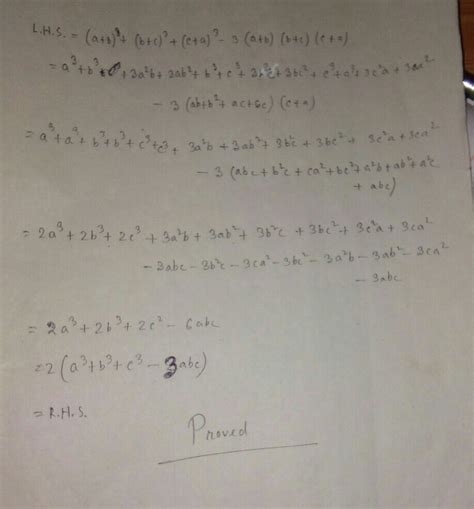 L.H.S. = (a+b)³ + (b+c)³ + (c+a)³ - 3 (a+b) (b+c) (c+a)
= a³ + b³ + 3a²b + 3ab² + b³ + c³ + 3b²c + 3bc² + c³ + a³ + 3c²a + 3ca²
- 3 (ab + b² + ac + bc) (c+a)
= a³ + a³ + b³ + b³ + c³ + c³ + 3a²b + 3ab² + 3b²c + 3bc² + 3c²a + 3ca²
- 3 (abc + b²c + ca² + bc² + a²b + ab² + a²c
+ abc)
= 2a³ + 2b³ + 2c³ + 3a²b + 3ab² + 3b²c + 3bc² + 3c²a + 3ca²
- 3abc - 3b²c - 3ca² - 3bc² - 3a²b - 3ab² - 3ca²
- 3abc
= 2a³ + 2b³ + 2c² - 6abc
= 2 (a³ + b³ + c³ - 3abc)
= R.H.S.
Proved